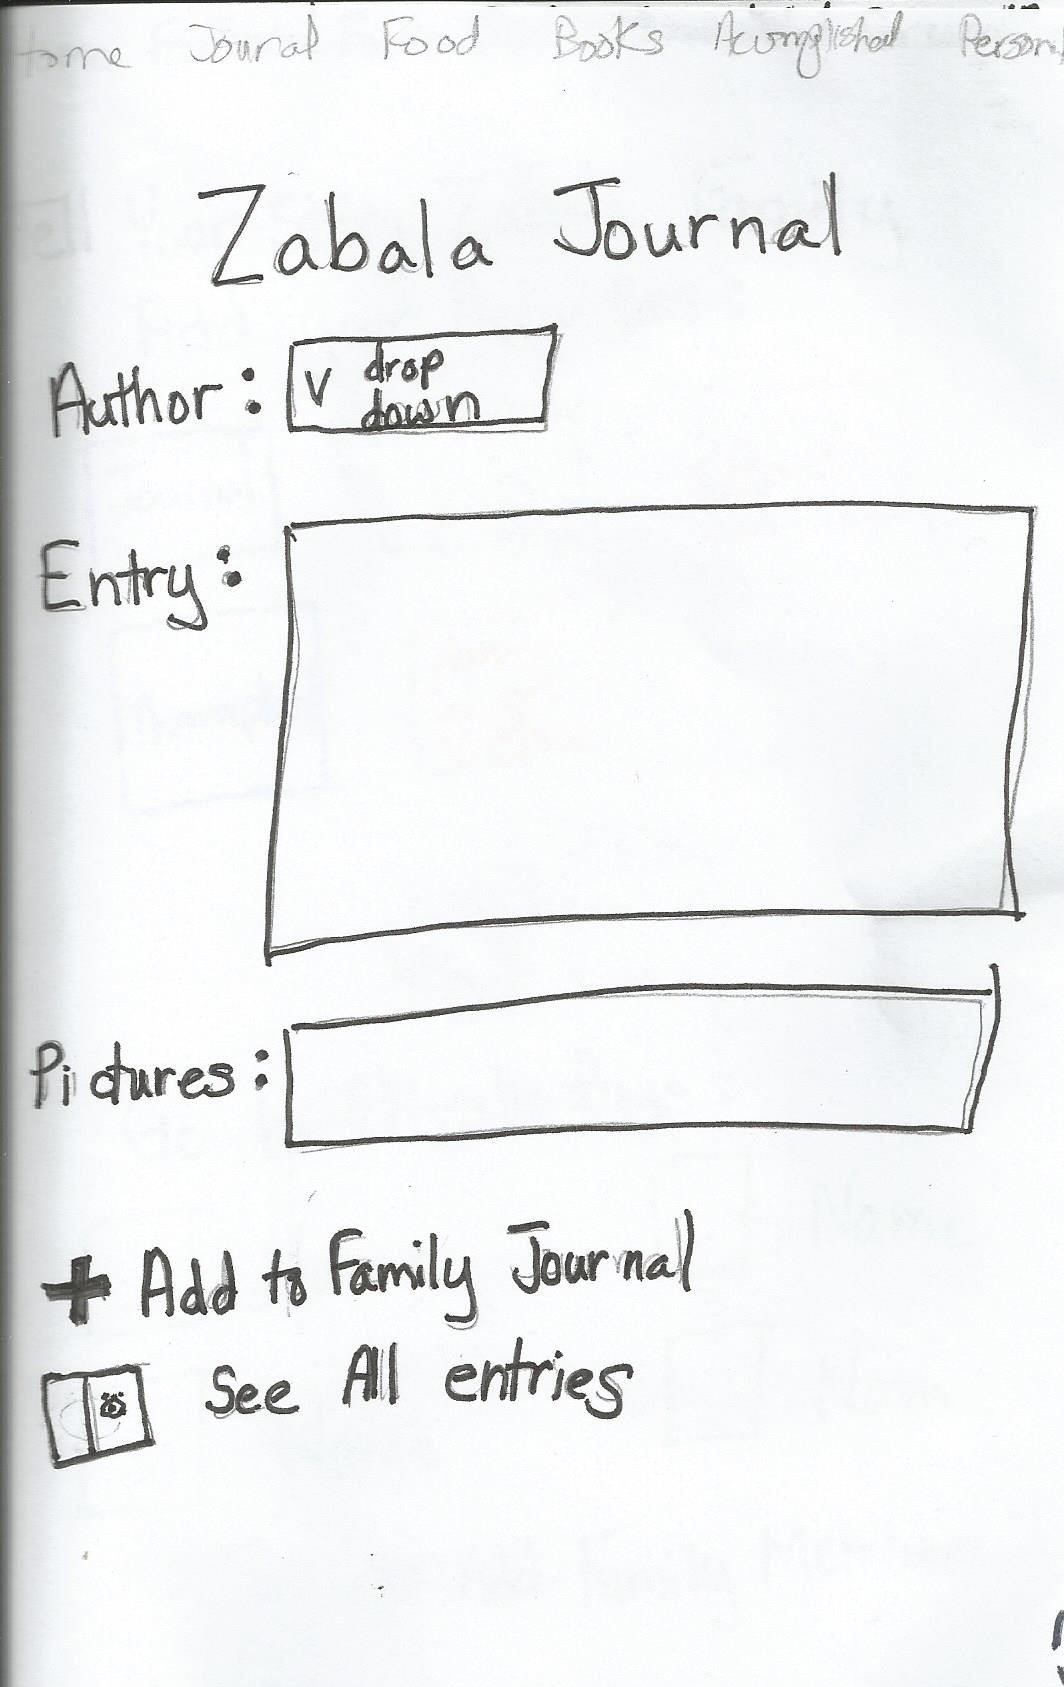 Home Jounal Food Books Acomplished Person
Zabala Journal
Author: V drop
down
Entry:
Pictures:
+ Add to Family Journal
See All entries